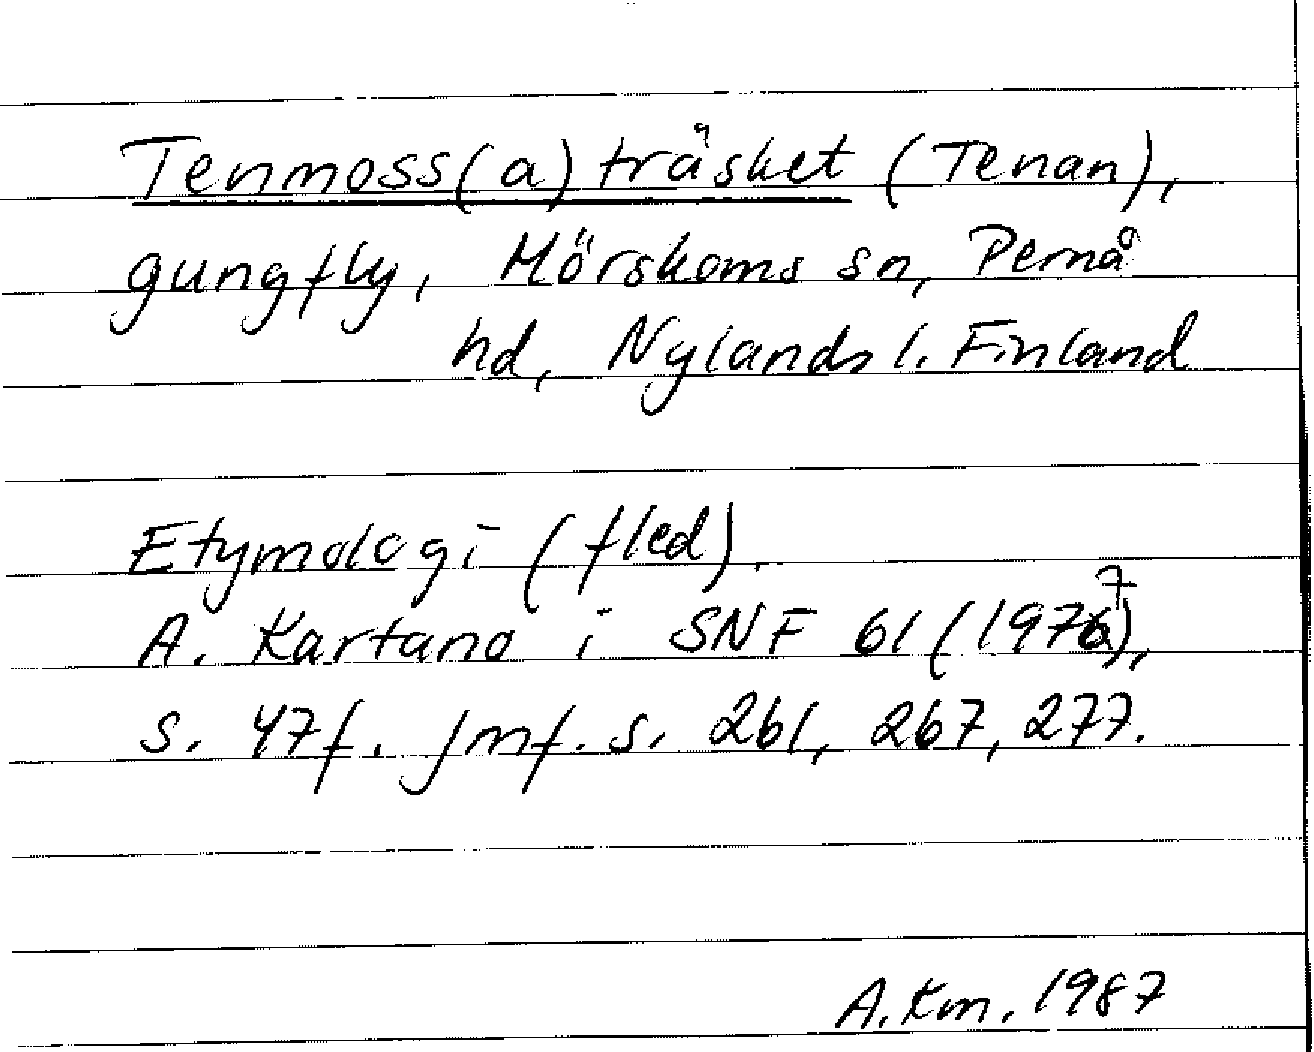 Tenmoss(a)träsket (Tenan),
gungfly, Mörskoms sn, Pernå
hd, Nylands l. Finland
Etymologi (fled).
A. Kartano i SNF 61 (1977),
s. 47f. Jmf. s. 261, 267, 277.
A.Km. 1987